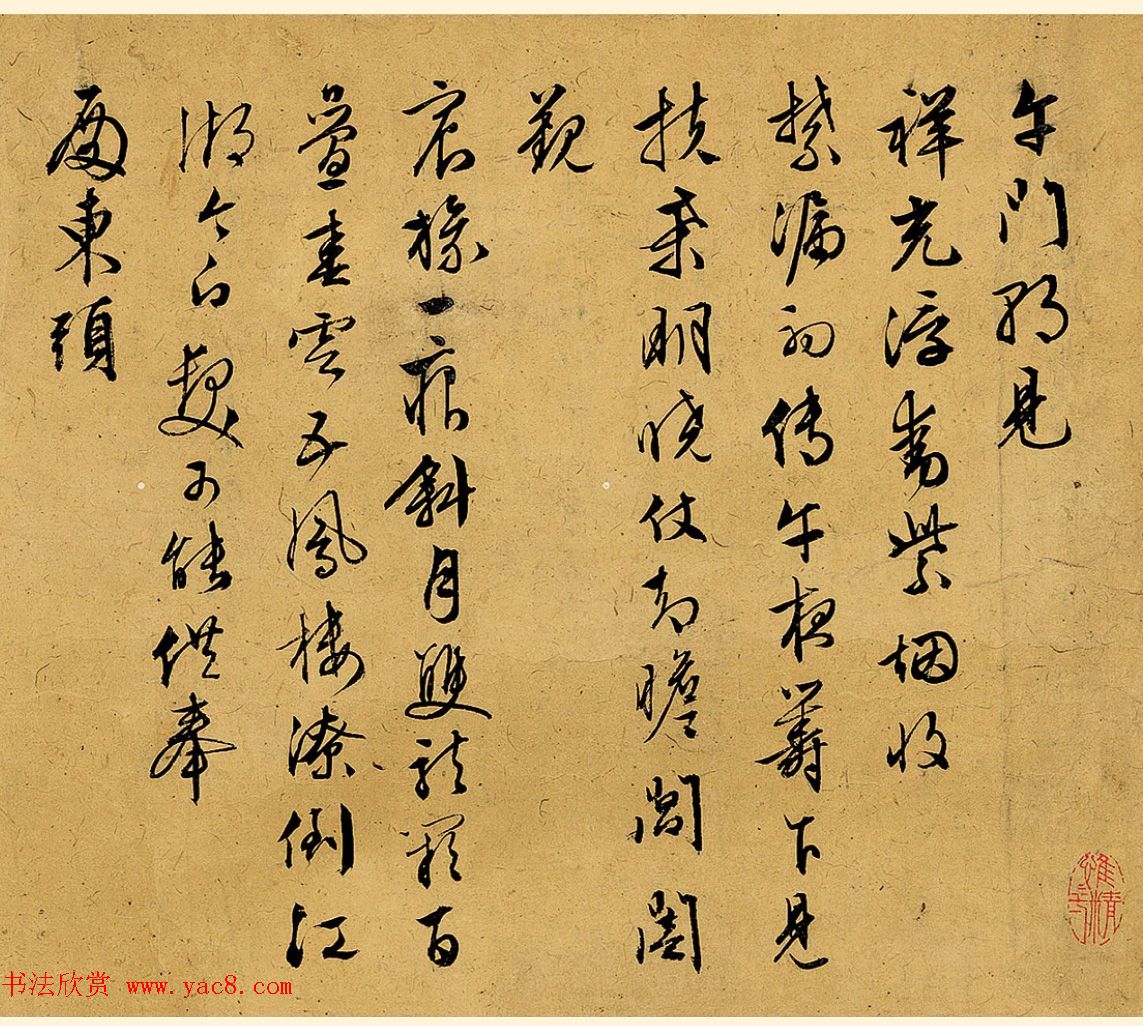 午門朝見
祥光浮動紫烟收
禁漏初傳午夜籌下見
扶桑明曉仗却瞻閶闔
覲
宸旒一痕斜月雙龍闕百
疊春雲五鳳樓潦倒江
湖今白髮可能供奉
殿東頭
书法欣赏 www.yac8.com